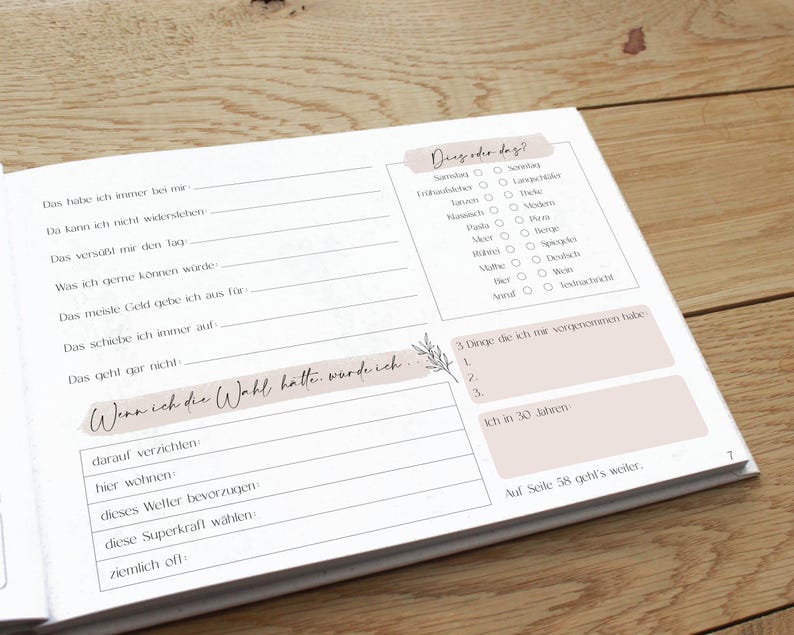 Das habe ich immer bei mir:
Da kann ich nicht widerstehen:
Das versüßt mir den Tag:
Was ich gerne können würde:
Das meiste Geld gebe ich aus für:
Das schiebe ich immer auf:
Das geht gar nicht:
Wenn ich die Wahl hätte, würde ich . . .
darauf verzichten:
hier wohnen:
dieses Wetter bevorzugen:
diese Superkraft wählen:
ziemlich oft:
Dies oder das?
Samstag Sonntag
Frühaufsteher Langschläfer
Tanzen Theke
Klassisch Modern
Pasta Pizza
Meer Berge
Rührei Spiegelei
Mathe Deutsch
Bier Wein
Anruf Textnachricht
3 Dinge die ich mir vorgenommen habe:
1.
2.
3.
Ich in 30 Jahren:
Auf Seite 58 geht's weiter.
7